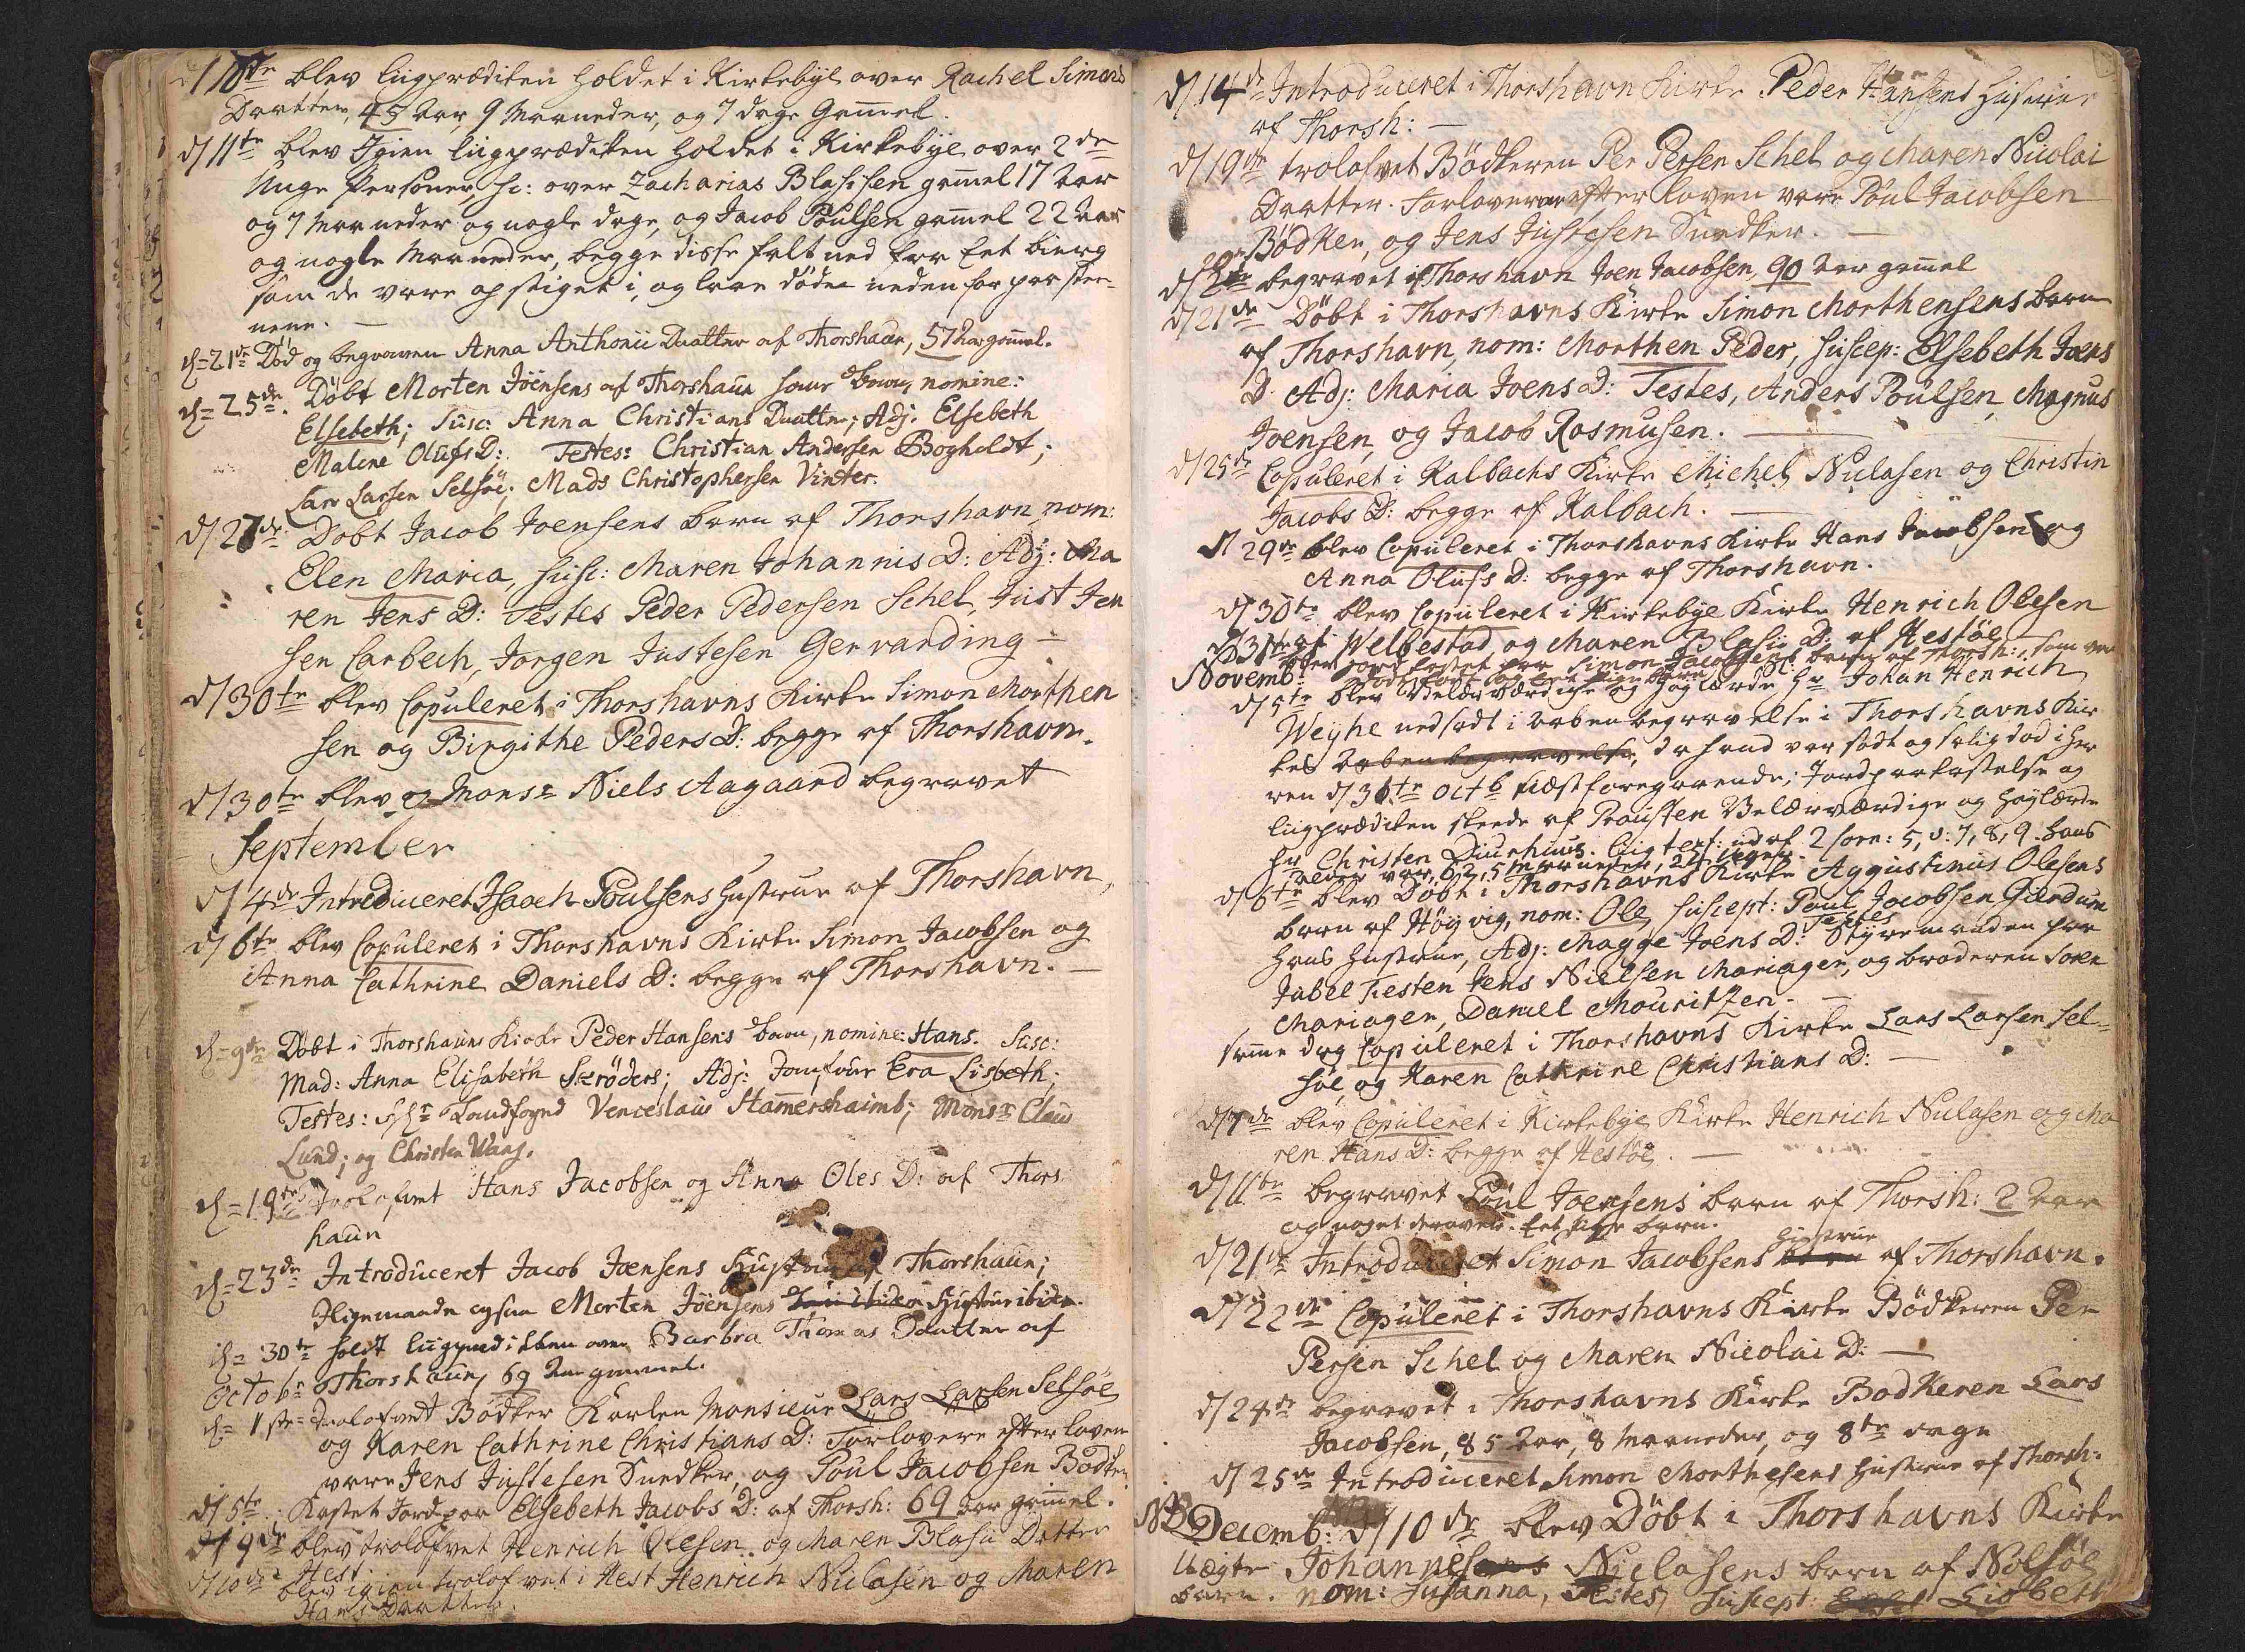 d/10de blev liigprædiken holdet i Kirkebÿe over Rachel Simons
Daatter, 45 aar, 9 Maaneder, og 7 dage Gam̅el.
d/11te blev Igien liigprædiken holdet i Kirkebÿe over 2de
Unge Personer, sc: over Zacharias Blasisen gam̅el 17 aar
og 7 Maaneder og nogle dage, og Jacob Poulsen gam̅el 22 aar
og nogle Maaneder, begge disse falt ned fra Eet bierg
som de vare op stiget i, og laae døde neden for paa stee-
nene. —
d=21de Død og begraven Anna Anthonii Daatter af Thorshaun, 57 Aar gam̅el.
d=25de. Döbt Morten Jöensens af Thorshaun hans Barn, nomine:
Elsebeth; Susc: Anna Christians Daatter; Adj. Elsebeth
Malene Olufs D: Testes: Christian Andersen Bogholdt;
Lars Larsen Selsöe; Mads Christophersen Vinter.
d/27de Döbt Jacob Joensens barn af Thorshavn, nom:
Elen Maria, susc: Maren Johannis D: Adj: Ma
ren Jens D: Testes Peder Pedersen Schel, Just Jen
sen Carbech, Jorgen Justesen Gervanding —
d/30te blev Copuleret i Thorshavns Kirke Simon Morthen
sen og Birgithe Peders D: begge af Thorshavn.
d/30te blev Monsr Niels Aagaard begravet
September
d/4de Introduceret Isaach Poulsens hustrue af Thorshavn,
d/6te blev Copuleret i Thorshavns Kirke Simon Jacobsen og
Anna Cathrine Daniels D: begge af Thorshavn. —
d=9de Döbt i Thorshauns Kirke Peder Hansens Barn, nomine: Hans. Susc:
Mad: Anna Elisabeth Skröders; Adj: Jomfrue Eva Lisbeth;
Testes: Landfogd Venceslaus Ham̅ershaimb; Monsr Claus
Lund; og Christen Waag.
d=19de Trolofvet Hans Jacobsen og Anna Oles D: af Thors
haun
d=23de Introduceret Jacob Joensens Hustrue af Thorshaun;
Ligemaade ogsaa Morten Jöensens Hustrue ibidem.
d=30te holdt liigprædikken over Barbra Thomas Daatter af
Octobr Thorshaun, 69 Aar gammel.
d=1ste Trolofvet Bödker Karlen Monsieur Lars Larsen Selsöe
og Karen Cathrine Christians D: Forlovere efter loven
vare Jens Justesen Snedker, og Poul Jacobsen Bödker
d/5te Kastet Jord paa Elsebeth Jacobs D: af Thorsh: 69 aar gam̅el.
d/9de blev trolofvet Henrich Olesen og Maren Blasii Datter
Hest.
d/10de blev igien trolofvet i Hest Henrich Niclasen og Maren
Hans Daatter.
d/14de Introduceret i Thorshavn Kirke Peder Hansens hustrue
af Thorsh: —
d/19de trolofvet Bödkeren Per Persen Schel og Maren Nicolai
Daatter. Forlovere efter loven vare Poul Jacobsen
Bödker, og Jens Justesen Snedker. —
d/20de begravet i Thorshavn Joen Jacobsen, 90 aar gam̅el
d/21de Döbt i Thorshavns Kirke Simon Morthensens barn
af Thorshavn, nom: Morthen Peder, suscep: Elsebeth Joens
D: Adj: Maria Joens D: Testes, Anders Poulsen, Magnus
Joensen, og Jacob Rasmusen. —
d/25de Copuleret i Kalbachs Kirke Michel Niclasen og Christin
Jacobs D: begge af Kalbach. —
d/29de blev Copuleret i Thorshavns Kirke Hans Jacobsen og
Anna Olufs D: begge af Thorshavn.
d/30te blev Copuleret i Kirkebÿe Kirke Henrich Olesen
af Welbestad, og Maren Blasii D: af Hestöe
d/31te blev jord kastet paa Simon Jacobsens barn af Thorsh:, som var
dödfödt og Eet pige barn
Novemb:
d/5te blev Velærværdige og Høylærde Hr Johan Henrich
Weyhe nedsadt i aaben begravelse i Thorshavns Kir
kes aaben begravelse, da hand var sødt og salig död i Her
ren d/30te Octb næst foregaaende; Jordpaakastelse og
liigprædiken skeede af Prousten Velærværdige og Høylærde
Hr Christen Diurhuus. Liigtext: ud af 2 Corr: 5, v: 7, 8, 9. hans
alder var, 62, 5 Maaneder, 2de uger.
d/6te blev Döbt i Thorshavns Kirke Augustinus Olesens
barn af Höyvig, nom: Ole, suscept: Poul Jacobsen Gierdum
hans hustrue, Adj: Magge Joens D: Testes Styremanden paa
Jubel Festen Jens Nielsen Mariager, og broderen Soren
Mariager, Daniel Mouritzen. —
samme dag Copuleret i Thorshavns Kirke Lars Larsen Sel-
söe og Karen Cathrine Christians D: —
d/7de blev Copuleret i Kirkebÿe Kirke Henrich Niclasen og Ma
ren Hans D: begge af Hestöe. —
d/11te begravet Poul Joensens barn af Thorsh: 2 aar
og noget derover. Eet pige barn.
d/21de Introduceret Simon Jacobsens hustrue af Thorshavn.
d/22de Copuleret i Thorshavns Kirke Bödkeren Per
Persen Schel og Maren Nicolai D: —
d/24de begravet i Thorshavns Kirke Bödkeren Lars
Jacobsen, 85 aar, 8 Maaneder, og 8te dage
d/25de Introduceret Simon Morthesens hustrue af Thorsh:
NB Decemb: d/10de blev Döbt i Thorshavns Kirke
Uægte Johannes Niclasens barn af Nolsöe
barn. nom: Susanna, Testes, suscept: Lisbeth